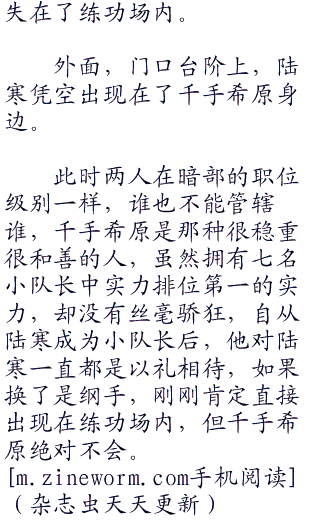 失在了练功场内。
外面，门口台阶上，陆
寒凭空出现在了千手希原身
边。
此时两人在暗部的职位
级别一样，谁也不能管辖
谁，千手希原是那种很稳重
很和善的人，虽然拥有七名
小队长中实力排位第一的实
力，却没有丝毫骄狂，自从
陆寒成为小队长后，他对陆
寒一直都是以礼相待，如果
换了是纲手，刚刚肯定直接
出现在练功场内，但千手希
原绝对不会。
[m.zineworm.com手机阅读]
（杂志虫天天更新）